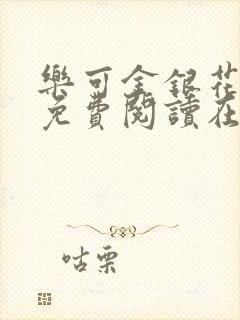 樂可金銀花
免費閱讀在
咕栗